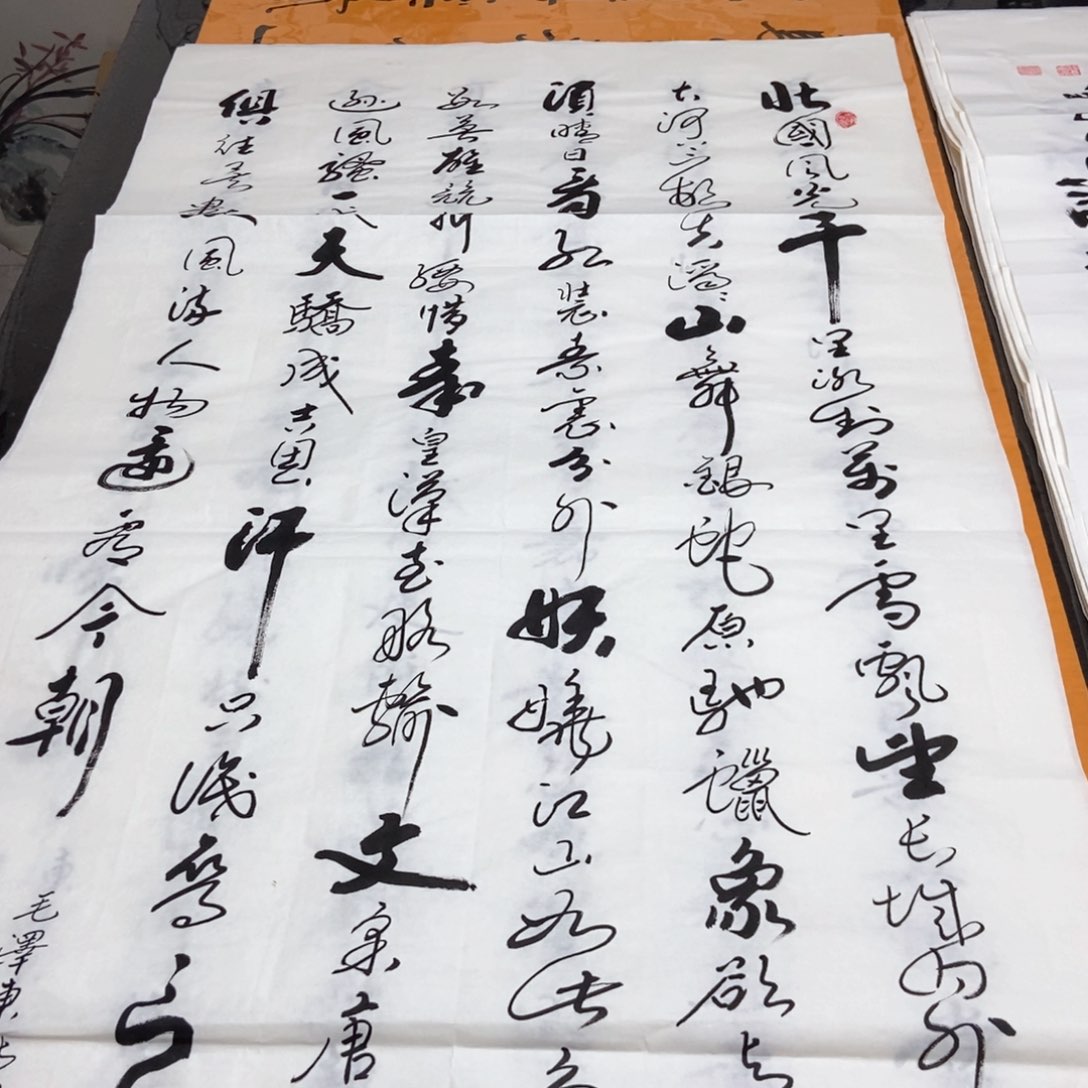 北國風光千里冰封萬里雪飄望长城内外
大河上下頓失滔滔山舞銀蛇原馳蠟象欲与
須晴日看紅裝素裹分外妖嬈江山如此多
數英雄競折腰惜秦皇漢武略輸文采唐
遜風騷一代天驕成吉思汗只識彎弓
俱往矣數風流人物還看今朝
毛澤東